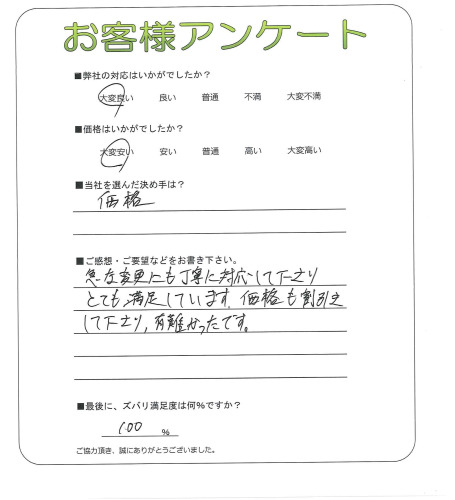 お客様アンケート
■弊社の対応はいかがでしたか？
大変良い 良い 普通 不満 大変不満
■価格はいかがでしたか？
大変安い 安い 普通 高い 大変高い
■当社を選んだ決め手は？
価格
■ご感想・ご要望などをお書き下さい。
急な変更にも丁寧に対応して下さり
とても満足しています。価格も割引き
して下さり、有難かったです。
■最後に、ズバリ満足度は何％ですか？
100 ％
ご協力頂き、誠にありがとうございました。